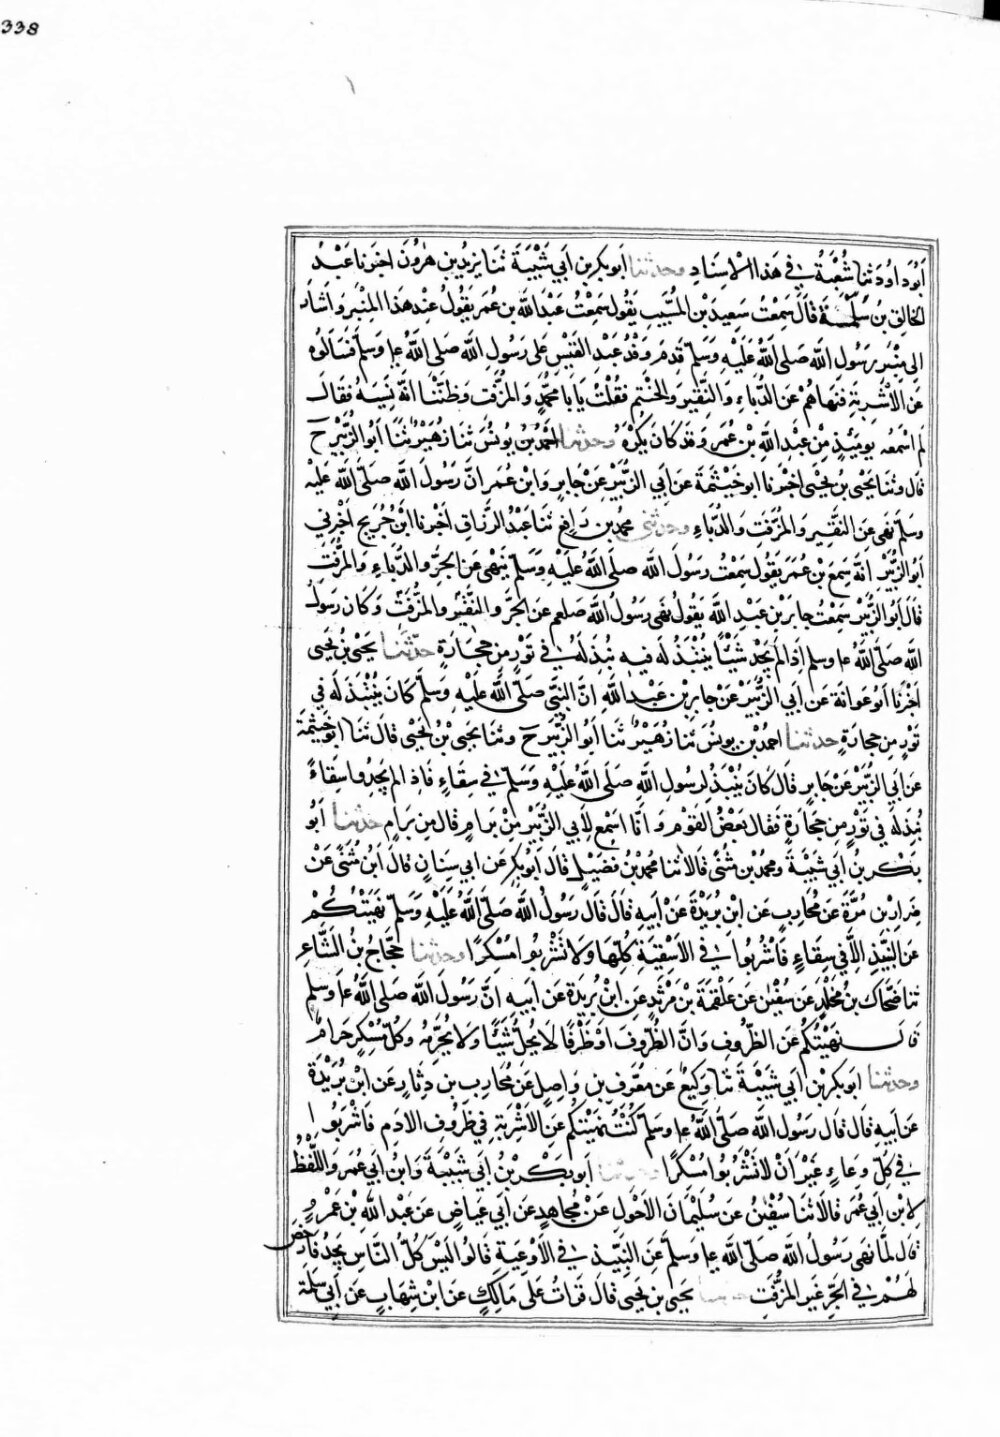 338
أبو داود ثنا شعبة في هذا الاسناد وحدثنا ابو بكر بن ابي شيبة ثنا يزيد بن هرون اخبرنا عبد
الخالق بن سلمة قال سمعت سعيد بن المسيب يقول سمعت عبد الله بن عمر يقول عند هذا المنبر واشار
الى منبر رسول الله صلى الله عليه وسلم قدم وفد عبد القيس على رسول الله صلى الله عا وسلم فسالوه
عن الاشربة فنهاهم عن الدباء والنقير والحنتم فقلت يابا محمد والمزفت وظننا انه نسيه فقال
لم اسمعه يومئذ من عبد الله بن عمر وقد كان يكره وحدثنا احمد بن يونس ثنا زهير ثنا ابو الزبير ح
قال وثنا يحيى بن يحيى اخبرنا ابو خيثمة عن ابي الزبير عن جابر وابن عمر ان رسول الله صلى الله عليه
وسلم نهى عن النقير والمزفت والدباء وحدثني محمد بن رافع ثنا عبد الرزاق اخبرنا ابن جريج اخبرني
ابو الزبير انه سمع بن عمر يقول سمعت رسول الله صلى الله عليه وسلم ينهى عن الجر والدباء والمزفت
قال ابو الزبير سمعت جابر بن عبد الله يقول نهى رسول الله صلعم عن الجر والنقير والمزفت وكان رسول
الله صلى الله عا وسلم اذا لم يجد شيئا ينتبذ له فيه نبذ له في تور من حجارة حدثنا يحيى بن يحيى
اخبرنا ابو عوانة عن ابي الزبير عن جابر بن عبد الله ان النبي صلى الله عليه وسلم كان ينبذ له في
تور من حجارة حدثنا احمد بن يونس ثنا زهير ثنا ابو الزبير ح وثنا يحيى بن يحيى قال ثنا ابو خيثمة
عن ابي الزبير عن جابر قال كان ينبذ لرسول الله صلى الله عليه وسلم في سقاء فاذا لم يجدوا سقاء
نبذ له في تور من حجارة فقال بعض القوم وانا اسمع لابي الزبير من برام قال من برام حدثنا ابو
بكر بن ابي شيبة ومحمد بن مثنى قالا ثنا محمد بن فضيل قال ابو بكر عن ابي سنان قال ابن مثنى عن
ضرار بن مرة عن محارب عن ابن بريدة عن ابيه قال قال رسول الله صلى الله عليه وسلم نهيتكم
عن النبيذ الا في سقاء فاشربوا في الاسقية كلها ولا تشربوا مسكرا وحدثنا حجاج بن الشاعر
ثنا ضحاك بن مخلد عن سفين عن علقمة بن مرثد عن ابن بريدة عن ابيه ان رسول الله صلى الله عا وسلم
قال نهيتكم عن الظروف وان الظروف او ظرفا لا يحل شيئا ولا يحرمه وكل مسكر حرام
وحدثنا ابو بكر بن ابي شيبة ثنا وكيع عن معرف بن واصل عن محارب بن دثار عن ابن بريدة
عن ابيه قال قال رسول الله صلى الله عا وسلم كنت نهيتكم عن الاشربة في ظروف الادم فاشربوا
في كل وعاء غير ان لا تشربوا مسكرا وحدثنا ابو بكر بن ابي شيبة وابن ابي عمر واللفظ
لابن ابي عمر قالا ثنا سفين عن سليمان الاحول عن مجاهد عن ابي عياض عن عبد الله بن عمرو
قال لما نهى رسول الله صلى الله عا وسلم عن النبيذ في الاوعية قالوا ليس كل الناس يجد فارخص
لهم في الجر غير المزفت حدثنا يحيى بن يحيى قال قرات على مالك عن ابن شهاب عن ابي سلمة